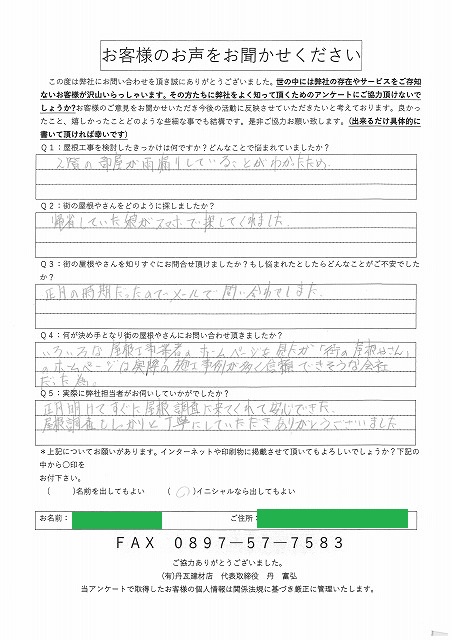 お客様のお声をお聞かせください
この度は弊社にお問い合わせを頂き誠にありがとうございました。世の中には弊社の存在やサービスをご存知
ないお客様が沢山いらっしゃいます。その方たちに弊社をよく知って頂くためのアンケートにご協力頂けないで
しょうか?お客様のご意見をお聞かせいただき今後の活動に反映させていただきたいと考えております。良かっ
たこと、嬉しかったことどのような些細な事でも結構です。是非ご協力お願い致します。（出来るだけ具体的に
書いて頂ければ幸いです）
Q1：屋根工事を検討したきっかけは何ですか？どんなことで悩まれていましたか？
2階の部屋が雨漏りしていることがわかったため.
Q2：街の屋根やさんをどのように探しましたか？
帰省していた娘がスマホで探してくれました.
Q3：街の屋根やさんを知りすぐにお問合せ頂けましたか？もし悩まれたとしたらどんなことがご不安でした
か？
正月の時期だったのでメールで問い合わせました.
Q4：何が決め手となり街の屋根やさんにお問い合わせ頂きましたか？
いろいろな屋根工事業者のホームページを見たが「街の屋根やさん」
のホームページは実際の施工事例が多く信頼できそうな会社
だった為。
Q5：実際に弊社担当者がお伺いしていかがでしたか？
正月明けてすぐに屋根調査に来てくれて安心できた.
屋根調査もしっかりと丁寧にしていただきありがとうございました
＊上記についてお願いがあります。インターネットや印刷物に掲載させて頂いてもよろしいでしょうか？下記の
中から〇印を
お付下さい。
（　　）名前を出してもよい　　（ 〇 ）イニシャルなら出してもよい
お名前：　　ご住所：
FAX 0897-57-7583
ご協力ありがとうございました。
(有)丹瓦建材店　代表取締役　丹　富弘
当アンケートで取得したお客様の個人情報は関係法規に基づき厳正に管理いたします。